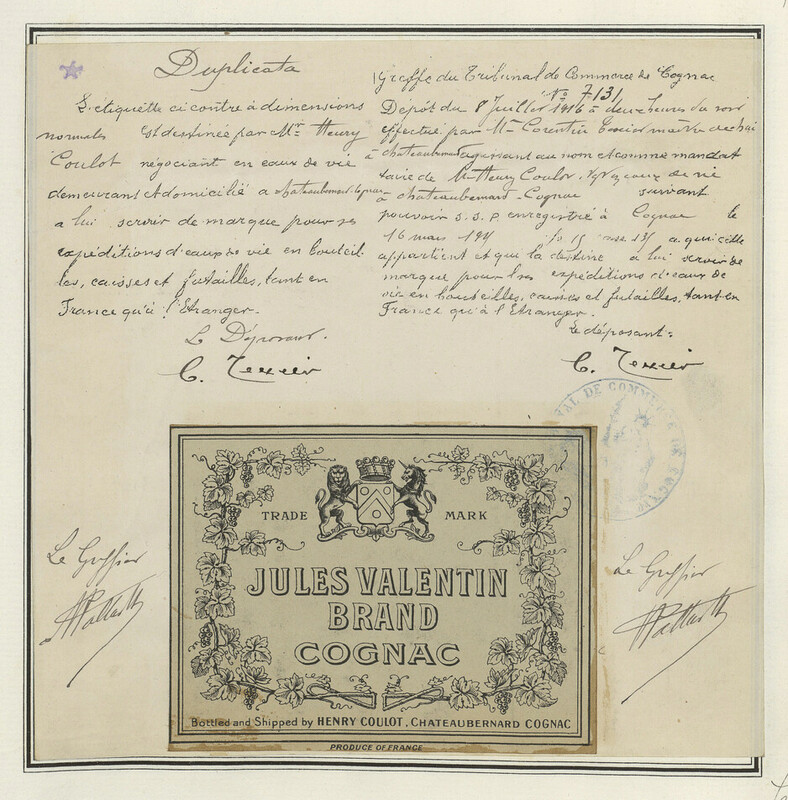 Duplicata
L'étiquette ci contre à dimensions
normales est destinée par Mr Henry
Coulot négociant en eaux de vie
demeurant et domicilié à Chateaubernard
a lui servir de marque pour ses
expéditions d'eaux de vie en bouteil
les, caisses et futailles, tant en
France qu'à l'Etranger.
Le Déposant.
C. Texier
Greffe du Tribunal de Commerce de Cognac
No 7131
Dépôt du 8 Juillet 1916 à deux heures du soir
effectué par Mr Corentin Texier maître de chai
à Chateaubernard agissant au nom et comme mandat
taire de Mr Henry Coulot, eaux de vie
à Chateaubernard - Cognac suivant
pouvoir s.s.p enregistré à Cognac le
16 mars a qui cette
appartient et qui la destine à lui servir de
marque pour les expéditions d'eaux de
vie en bouteilles, caisses et futailles, tant en
France qu'à l'Etranger.
Le déposant:
C. Texier
TRIBUNAL DE COMMERCE DE COGNAC
Le Greffier
Le Greffier
TRADE MARK
JULES VALENTIN
BRAND
COGNAC
Bottled and Shipped by HENRY COULOT, CHATEAUBERNARD COGNAC
PRODUCE OF FRANCE